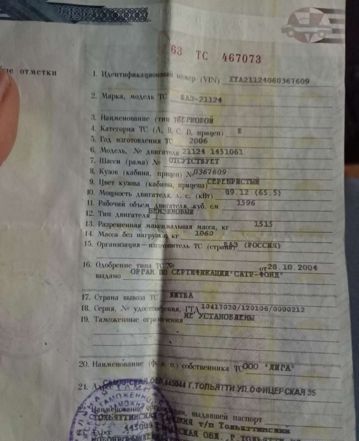 63 ТС 467073
ые отметки
1. Идентификационный номер (VIN) XTA21124060367609
2. Марка, модель ТС ВАЗ-21124
3. Наименование (тип ТС)
4. Категория ТС (A, B, C, D, прицеп) B
5. Год изготовления ТС 2006
6. Модель, № двигателя 21124 1451061
7. Шасси (рама) № ОТСУТСТВУЕТ
8. Кузов (кабина, прицеп) № 0367609
9. Цвет кузова (кабины, прицепа) СЕРЕБРИСТЫЙ
10. Мощность двигателя, л. с. (кВт) 89.12 (65.5)
11. Рабочий объем двигателя, куб. см 1596
12. Тип двигателя БЕНЗИНОВЫЙ
13. Разрешенная максимальная масса, кг 1515
14. Масса без нагрузки, кг 1060
15. Организация-изготовитель ТС (страна) ВАЗ (РОССИЯ)
16. Одобрение типа ТС № от 28.10.2004
выдано ОРГАН ПО СЕРТИФИКАЦИИ "САТР-ФОНД"
17. Страна вывоза ТС ЛИТВА
18. Серия, № удостоверения, ГТД 10417030/120106/0000212
19. Таможенные ограничения НЕ УСТАНОВЛЕНЫ
20. Наименование (ф. и. о.) собственника ТС ООО "ЛИГА"
21. Г.ТОЛЬЯТТИ УЛ.ОФИЦЕРСКАЯ
Наименование организации, выдавшей паспорт
т/п Тольяттинская